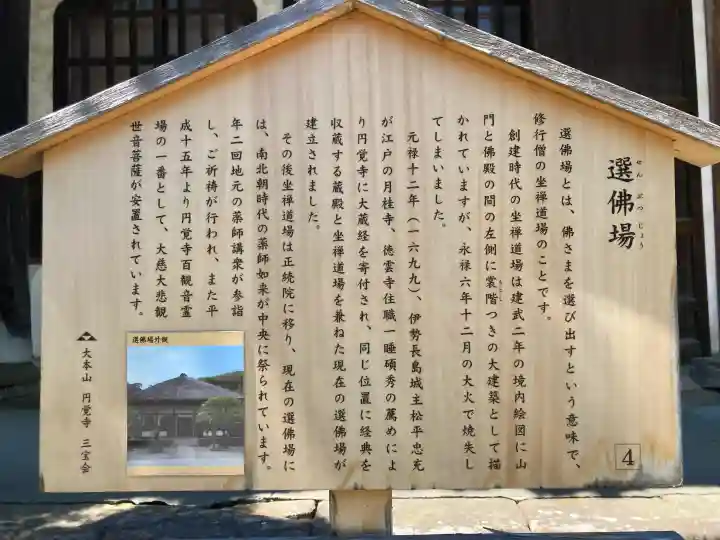 選佛場
せんぶつじょう
選佛場とは、佛さまを選び出すという意味で、
修行僧の坐禅道場のことです。
創建時代の坐禅道場は建武二年の境内絵図に山
門と佛殿の間の左側に裳階つきの大建築として描
もこし
かれていますが、永禄六年十二月の大火で焼失し
てしまいました。
元禄十二年（一六九九）、伊勢長島城主松平忠充
が江戸の月桂寺、徳雲寺住職一睡碩秀の薦めによ
り円覚寺に大蔵経を寄付され、同じ位置に経典を
収蔵する蔵殿と坐禅道場を兼ねた現在の選佛場が
建立されました。
その後坐禅道場は正続院に移り、現在の選佛場に
は、南北朝時代の薬師如来が中央に祭られています。
年二回地元の薬師講衆が参詣
し、ご祈祷が行われ、また平
成十五年より円覚寺百観音霊
場の一番として、大慈大悲観
世音菩薩が安置されています。
選佛場外観
大本山 円覚寺 三宝会
4